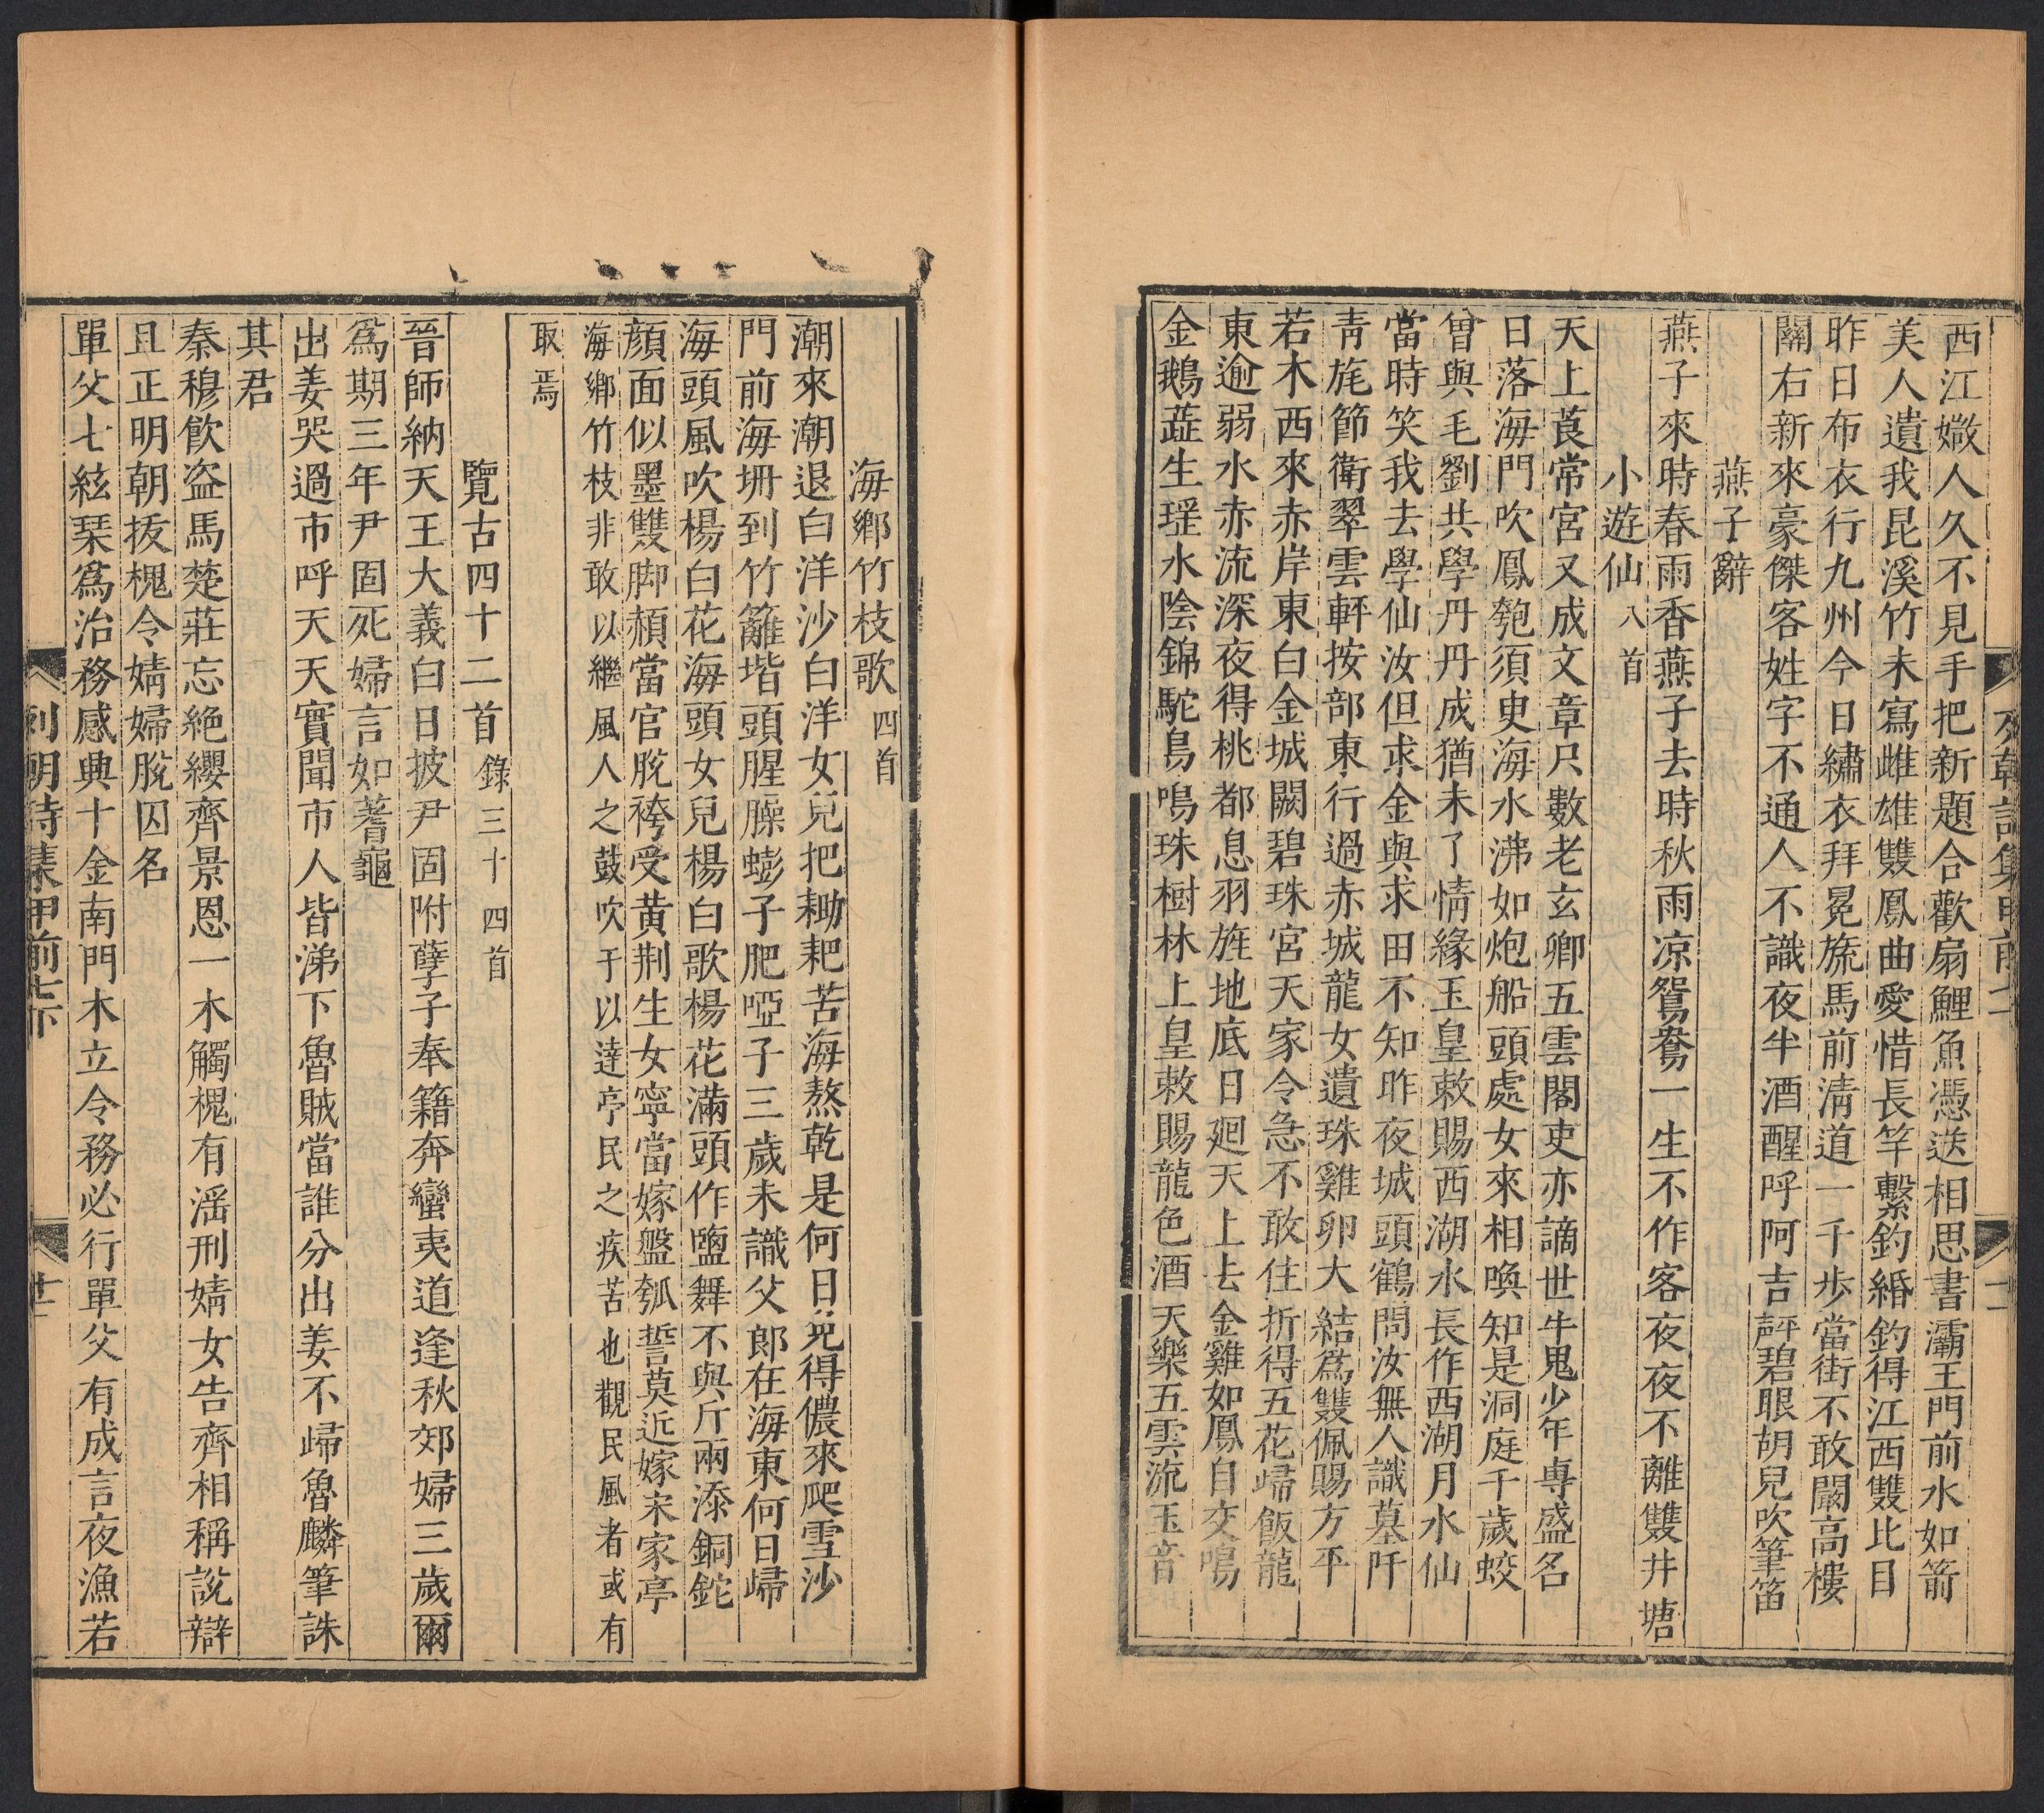 西江媺人久不見手把新題合歡扇鯉魚憑送相思書灞王門前水如箭
美人遺我昆溪竹未寫雌雄雙鳳曲愛惜長竿繫釣緡釣得江西雙比目
昨日布衣行九州今日繡衣拜冕旒馬前淸道一千步當街不敢闞高樓
關右新來豪傑客姓字不通人不識夜半酒醒呼阿吉碧眼胡兒吹筆笛
燕子辭
燕子來時春雨香燕子去時秋雨凉鴛鴦一生不作客夜夜不離雙井塘
小遊仙八首
天上莨常宮又成文章尺數老玄卿五雲閣吏亦謫世牛鬼少年専盛名
日落海門吹鳳匏須臾海水沸如炮船頭處女來相喚知是洞庭千歲蛟
曾與毛劉共學丹丹成猶未了情緣玉皇敕賜西湖水長作西湖月水仙
當時笑我去學仙汝但求金與求田不知昨夜城頭鶴問汝無人識墓阡
靑旄節衛翠雲軿按部東行過赤城龍女遺珠雞卵大結爲雙佩賜方平
若木西來赤岸東白金城闕碧珠宮天家令急不敢住折得五花歸飯龍
東逾弱水赤流深夜得桃都息羽旌地底日廻天上去金雞如鳳自交鳴
金鵝蕋生瑶水陰錦駝鳥鳴珠樹林上皇敕賜龍色酒天樂五雲流玉音
海鄉竹枝歌四首
潮來潮退白洋沙白洋女兒把耡耙苦海熬乾是何日免得儂來爬雪沙
門前海坍到竹籬堦頭腥臊蟛子肥啞子三歲未識父郎在海東何日歸
海頭風吹楊白花海頭女兒楊白歌楊花滿頭作鹽舞不與斤兩添銅鉈
顏面似墨雙脚赬當官脫袴受黄荆生女寧當嫁盤瓠誓莫近嫁宋家亭
海鄉竹枝非敢以繼風人之鼓吹于以達亭民之疾苦也觀民風者或有
取焉
覽古四十二首錄三十四首
晉師納天王大義白日披尹固附孽子奉籍奔蠻夷道逢秋郊婦三歲爾
爲期三年尹固死婦言如蓍龜
出姜哭過市呼天天實聞市人皆涕下魯賊當誰分出姜不歸魯麟筆誅
其君
秦穆飮盜馬楚莊忘絶纓齊景恩一木觸槐有滛刑婧女告齊相稱說辯
且正明朝拔槐令婧婦脫囚名
單父七絃琹爲治務感興十金南門木立令務必行單父有成言夜漁若
列朝詩集甲前七下 廿一